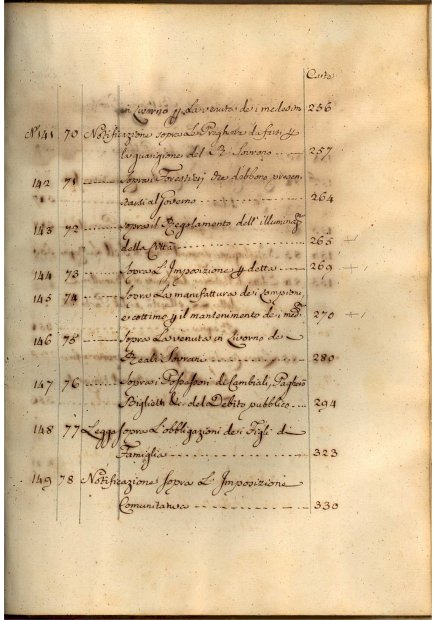 Carte
in Livorno p La venuta dei medesimi 256
N° 141 70 Notificazione sopra Le Preghiere da farsi p
la guarigione del R. Sovrano 257
142 71 Sopra i Forestieri che debbono presen
tarsi al Governo 264
143 72 sopra il Regolamento dell' illuminaz:e
della Città 265
144 73 Sopra L'Imposizione p detta 269
145 74 Sopra La manifattura dei Lampioni
e cottimo p il mantenimento dei med:i 270
146 75 Sopra La venuta in Livorno de
Reali Sovrani 280
147 76 Sopra i Possessori di Cambiali, Pagherò
Biglietti &c del Debito pubblico 294
148 77 Legge sopra L'obbligazioni dei Figli di
Famiglia 323
149 78 Notificazione Sopra L'Imposizione
Comunitativa 330